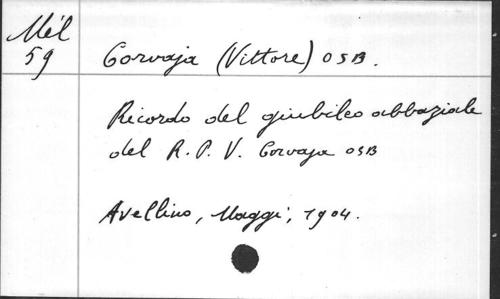 Mél
59
Corvaja (Vittore) OSB.
Ricordo del giubileo abbaziale
del R. P. V. Corvaja OSB
Avellino, Maggi, 1904.